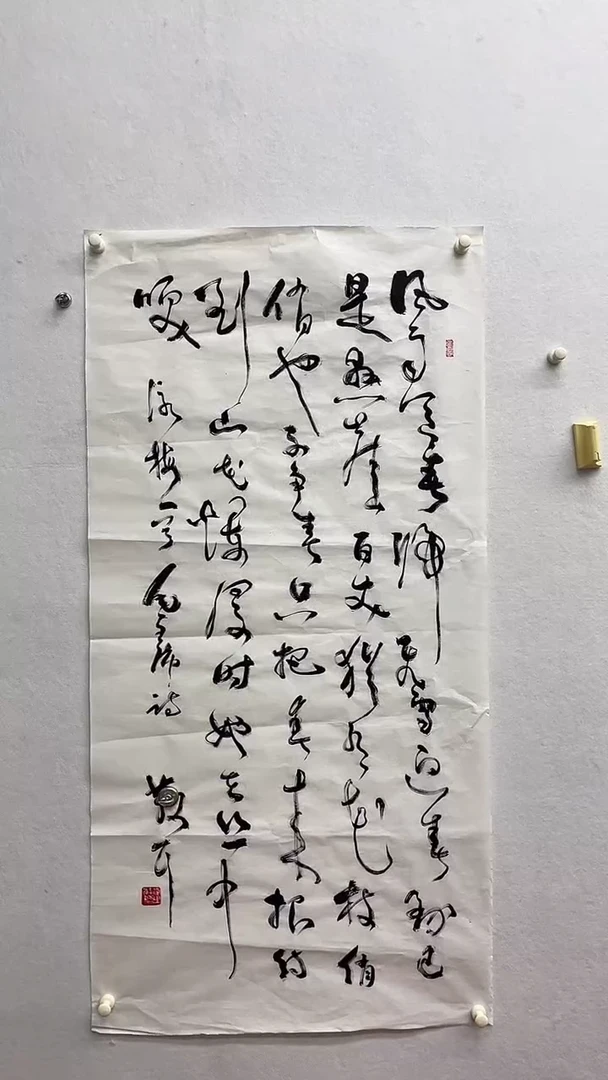 风雨送春归飞雪迎春到已
是悬崖百丈犹有花枝俏
俏也不争春只把春来报待
到山花烂漫时她在丛中
咲 咏梅一首 毛主席诗